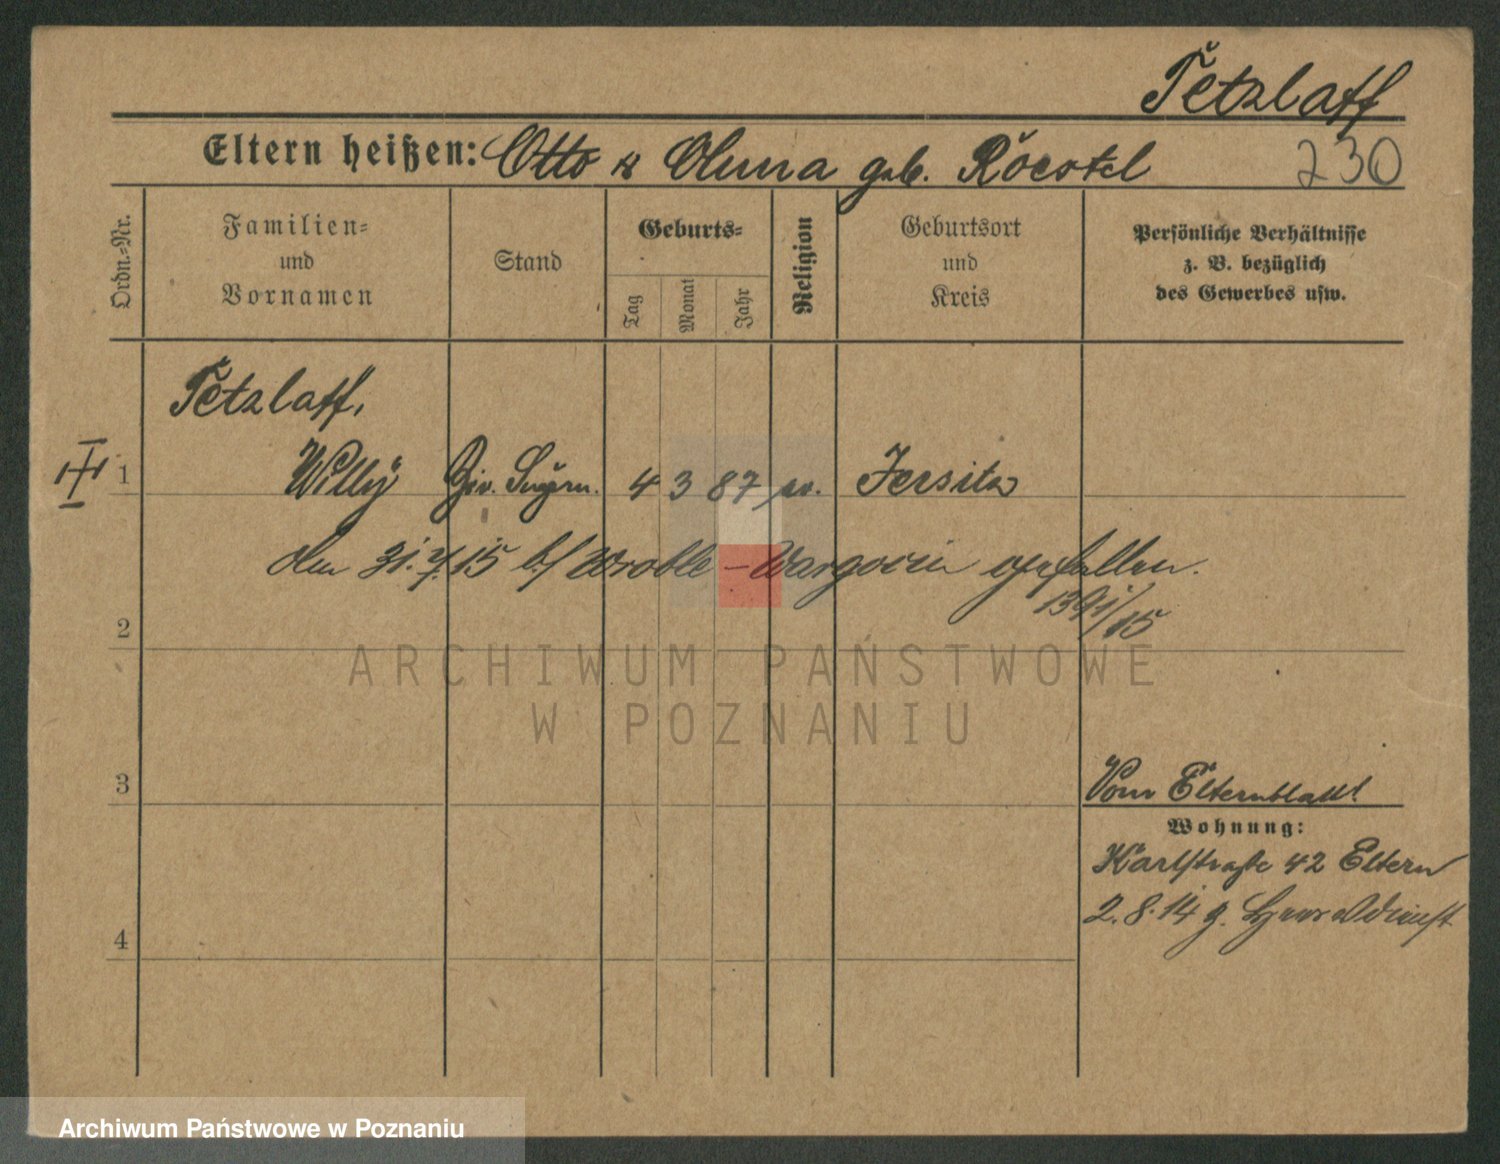 Tetzlaff
Eltern heißen: Otto u Anna geb. Roestel 230
Ordn.-Nr.
Familien-
und
Vornamen
Stand
Geburts-
Tag
Monat
Jahr
Religion
Geburtsort
und
Kreis
Persönliche Verhältnisse
z. B. bezüglich
des Gewerbes usw.
Tetzlaff,
1 Willy Ziv. 4 3 87 ev. Jersitz
den 31. 7. 15 b/ Wroble – Wargocin gefallen.
1391/15
2
ARCHIWUM PAŃSTWOWE
W POZNANIU
3
Vom Elternblatt
Wohnung:
Karlstraße 42 Eltern
2. 8. 14 z. Heeresdienst
4
Archiwum Państwowe w Poznaniu